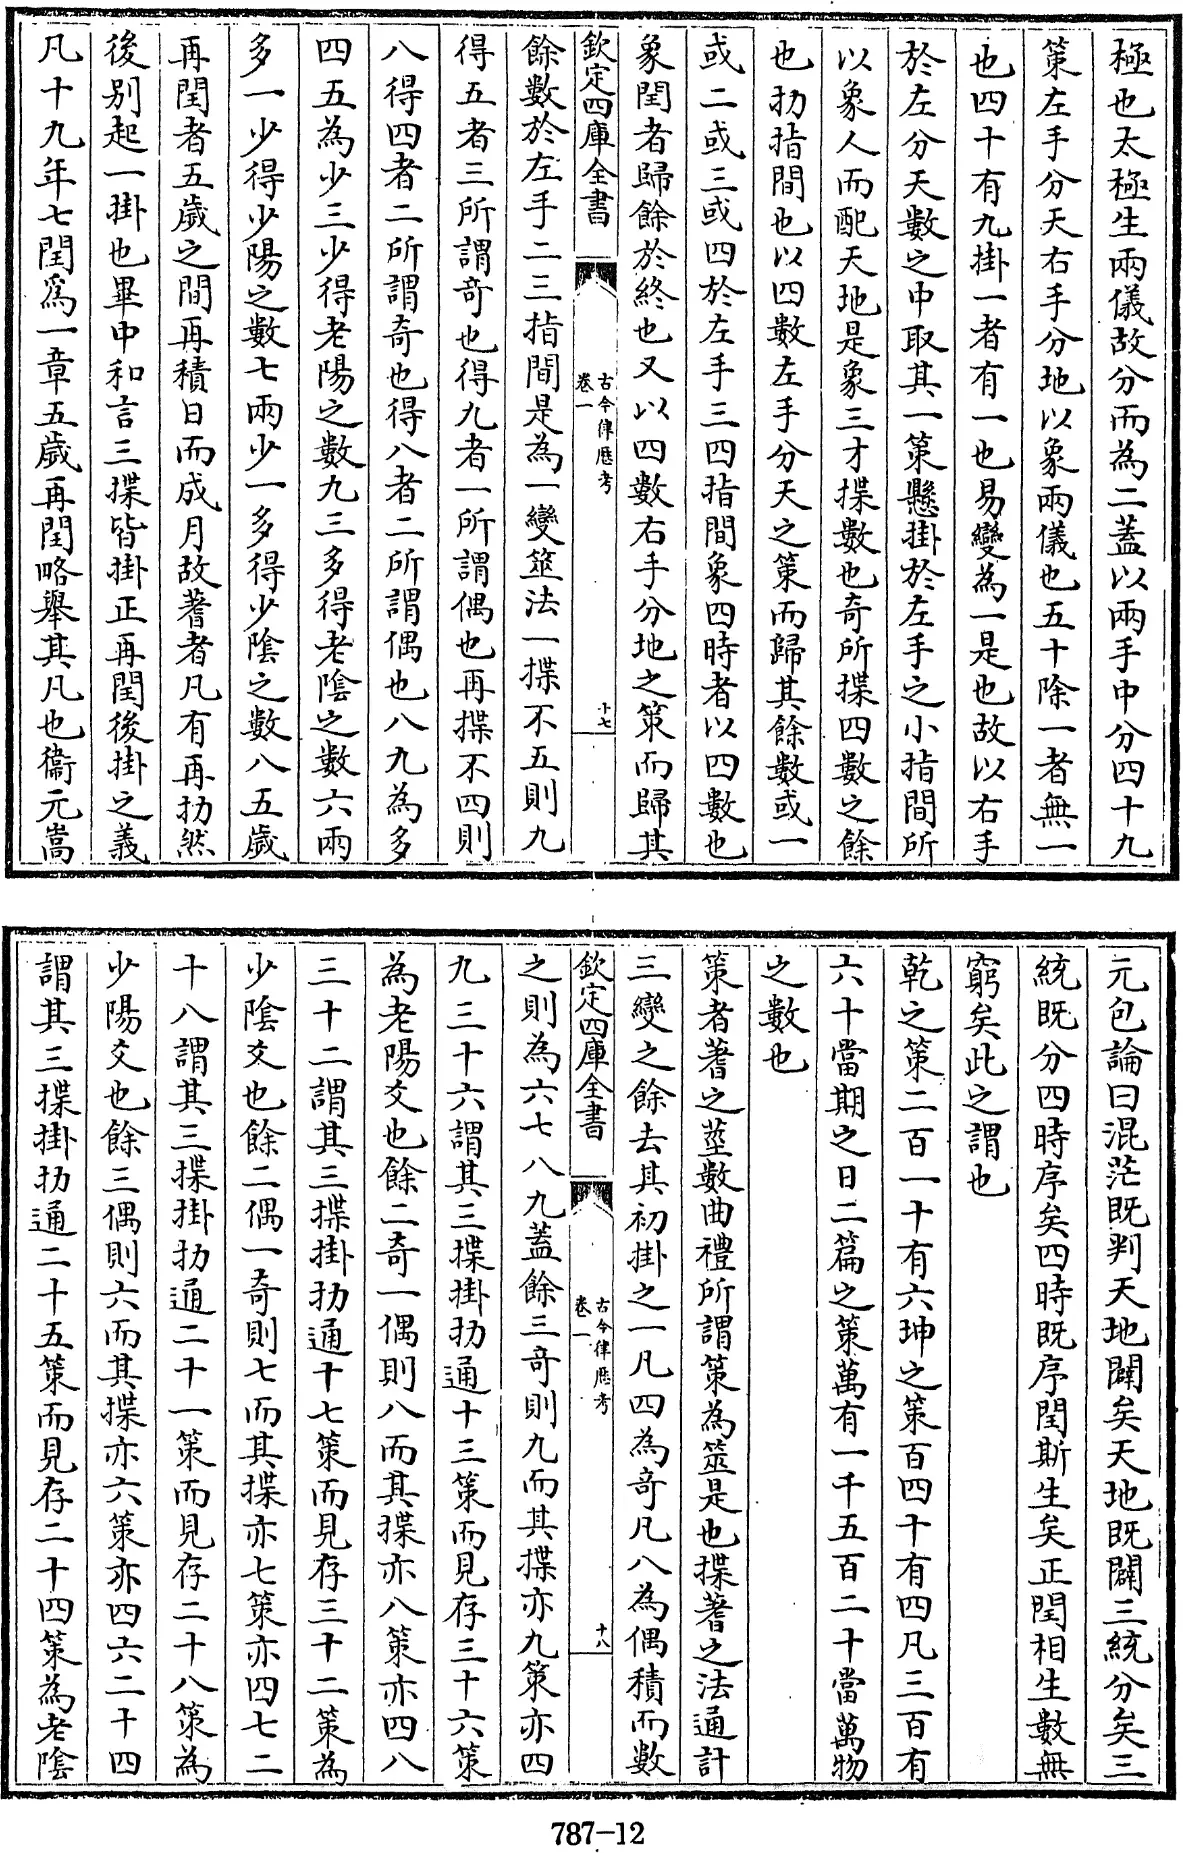 極也太極生兩儀故分而為二蓋以兩手中分四十九
策左手分天右手分地以象兩儀也五十除一者無一
也四十有九掛一者有一也易變為一是也故以右手
於左分天數之中取其一策懸掛於左手之小指間所
以象人而配天地是象三才揲數也奇所揲四數之餘
也扐指間也以四數左手分天之策而歸其餘數或一
或二或三或四於左手三四指間象四時者以四數也
象閏者歸餘於終也又以四數右手分地之策而歸其
欽定四庫全書
古今律厯考
卷一
十七
餘數於左手二三指間是為一變筮法一揲不五則九
得五者三所謂奇也得九者一所謂偶也再揲不四則
八得四者二所謂奇也得八者二所謂偶也八九為多
四五為少三少得老陽之數九三多得老陰之數六兩
多一少得少陽之數七兩少一多得少陰之數八五歲
再閏者五歲之間再積日而成月故蓍者凡有再扐然
後别起一掛也畢中和言三揲皆掛正再閏後掛之義
凡十九年七閏為一章五歲再閏略舉其凡也衞元嵩
元包論曰混茫既判天地闢矣天地既闢三統分矣三
統既分四時序矣四時既序閏斯生矣正閏相生數無
窮矣此之謂也
乾之策二百一十有六坤之策百四十有四凡三百有
六十當期之日二篇之策萬有一千五百二十當萬物
之數也
策者蓍之莖數曲禮所謂策為筮是也揲蓍之法通計
三變之餘去其初掛之一凡四為奇凡八為偶積而數
欽定四庫全書
古今律厯考
卷一
十八
之則為六七八九蓋餘三奇則九而其揲亦九策亦四
九三十六謂其三揲掛扐通十三策而見存三十六策
為老陽爻也餘二奇一偶則八而其揲亦八策亦四八
三十二謂其三揲掛扐通十七策而見存三十二策為
少陰爻也餘二偶一奇則七而其揲亦七策亦四七二
十八謂其三揲掛扐通二十一策而見存二十八策為
少陽爻也餘三偶則六而其揲亦六策亦四六二十四
謂其三揲掛扐通二十五策而見存二十四策為老陰
787-12